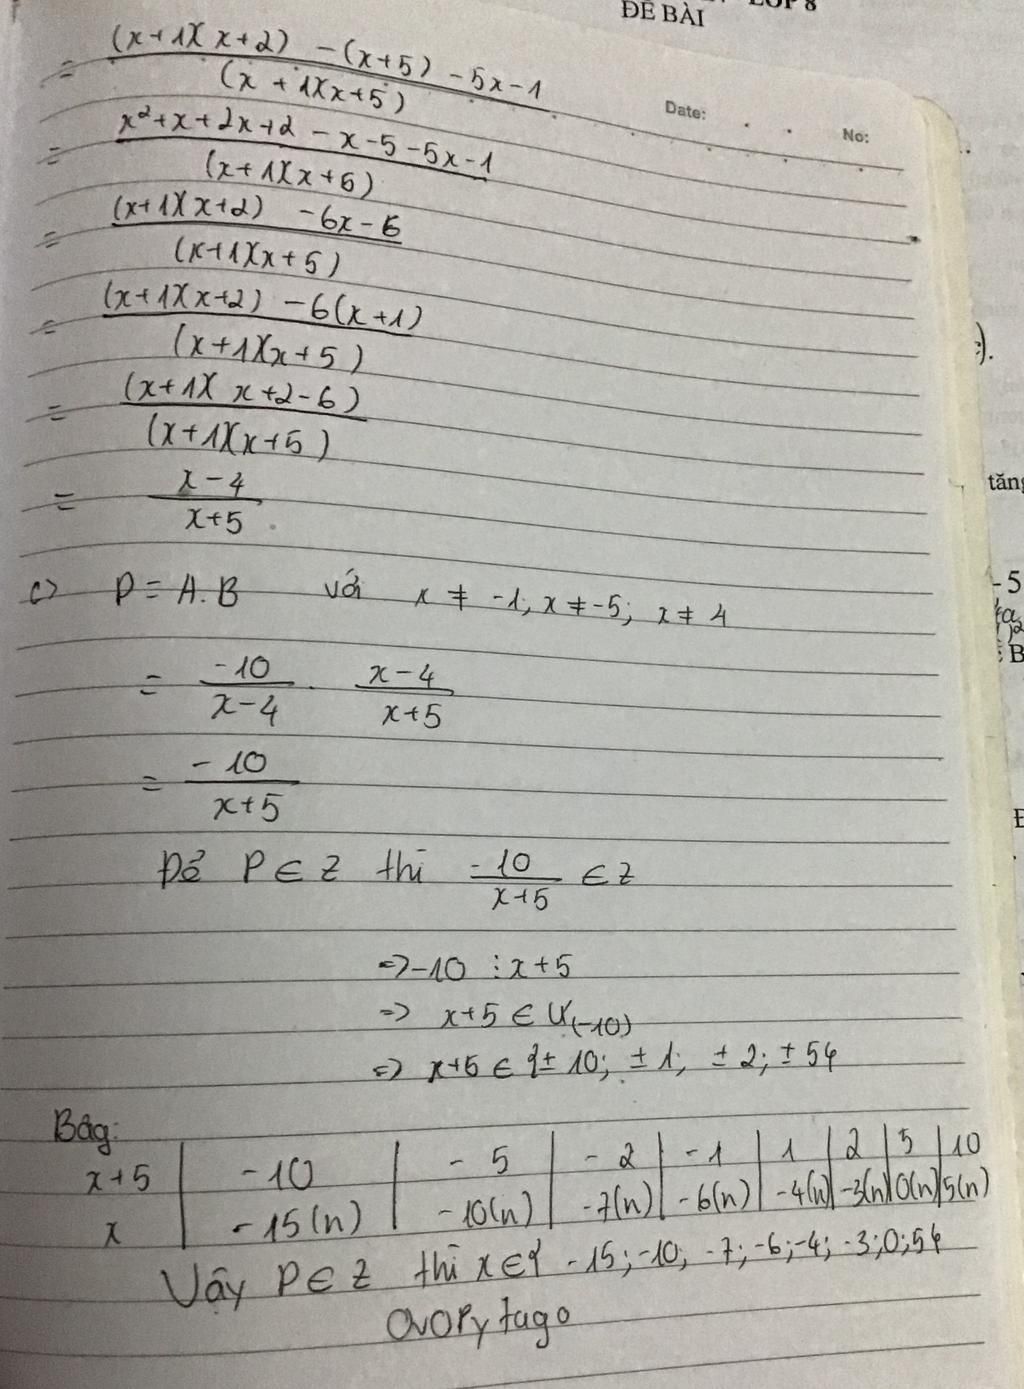 LỚP 8
ĐỀ BÀI
Date:
No:
= \frac{(x+1)(x+2) -(x+5) -5x-1}{(x+1)(x+5)}
= \frac{x²+x+2x+2-x-5-5x-1}{(x+1)(x+5)}
= \frac{(x+1)(x+2) -6x-6}{(x+1)(x+5)}
= \frac{(x+1)(x+2) -6(x+1)}{(x+1)(x+5)}
= \frac{(x+1)(x+2-6)}{(x+1)(x+5)}
= \frac{x-4}{x+5}
c) P = A.B với x ≠ -1, x ≠ -5; x ≠ 4
= \frac{-10}{x-4} . \frac{x-4}{x+5}
= \frac{-10}{x+5}
Để P ∈ Z thì \frac{-10}{x+5} ∈ Z
=> -10 ⋮ x+5
=> x+5 ∈ Ư(-10)
=> x+5 ∈ {± 10; ± 1; ± 2; ± 5}
Bảg:
x+5 | -10 | -5 | -2 | -1 | 1 | 2 | 5 | 10
x | -15(n) | -10(n) | -7(n) | -6(n) | -4(n) | -3(n) | 0(n) | 5(n)
Vậy P ∈ Z thì x ∈ { -15; -10; -7; -6; -4; -3; 0; 5}
OVOPytago
tăng
- 5
B